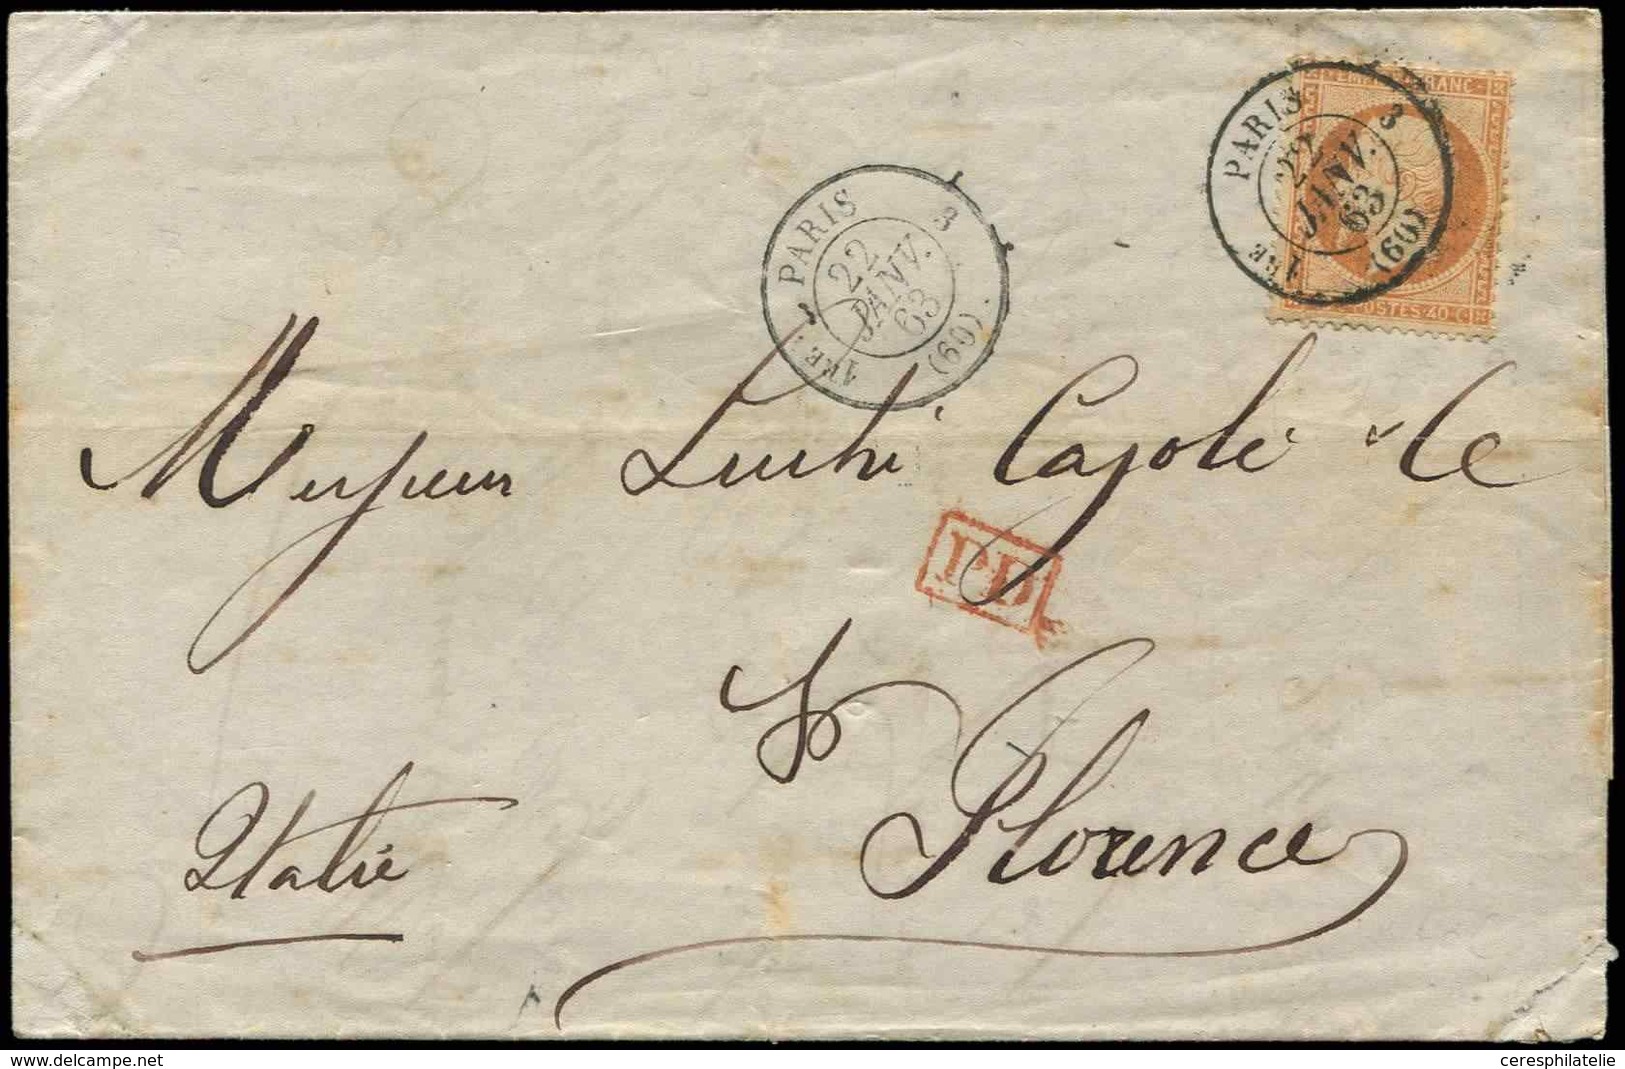 EMP FRANC
POSTES 40 C
PARIS 3
22
JANV.
63
1RE (60)
PARIS 3
22
JANV.
63
1RE (60)
Messieurs Luchi Cajoli & Ce
P.D.
Florence
Italie
delcampe.net
ceresphilatelie